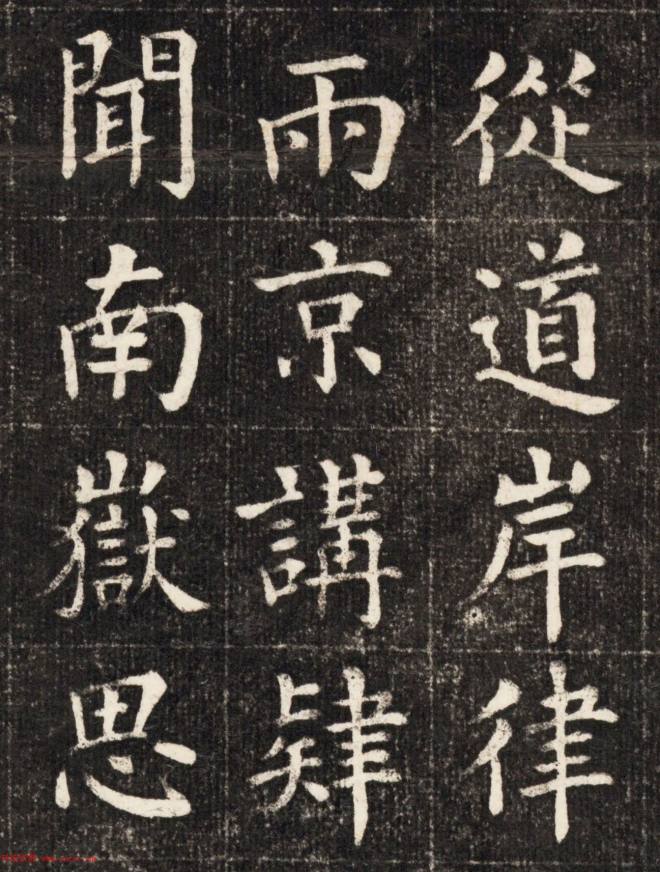 從道岸律
兩京講肄
聞南嶽思